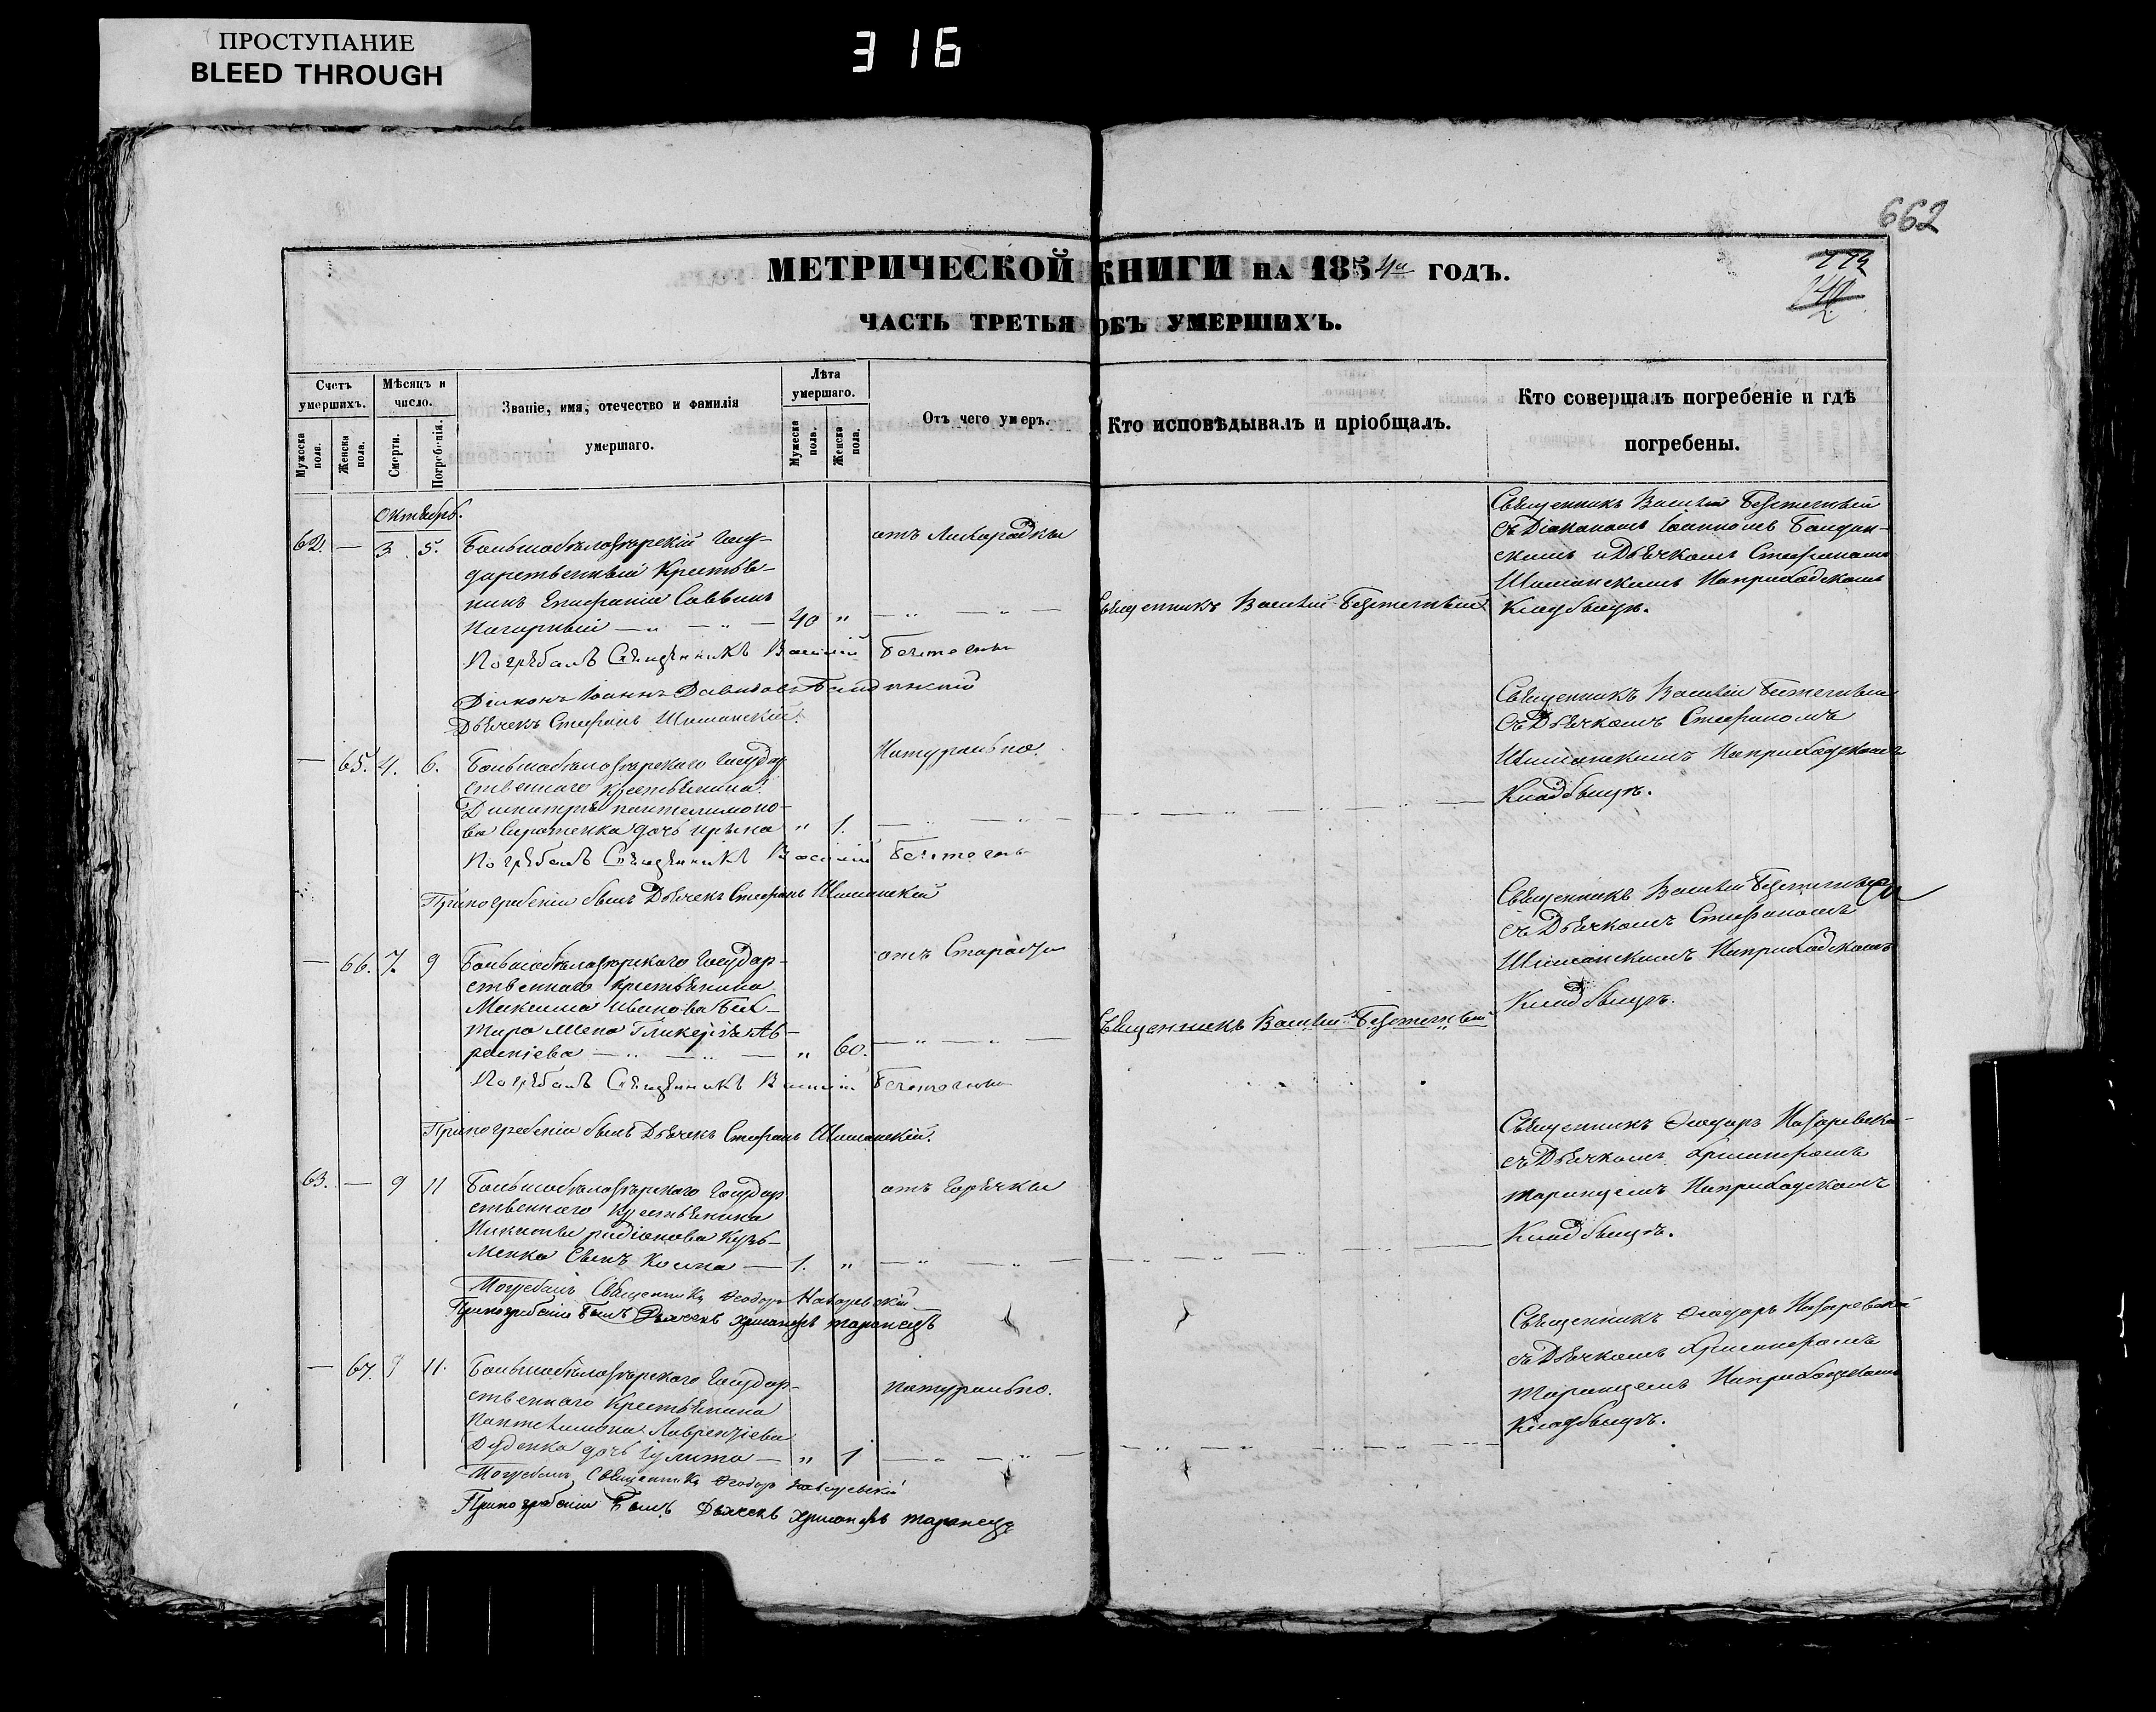 ПРОСТУПАНИЕ
BLEED THROUGH
316
662
МЕТРИЧЕСКОЙ КНИГИ НА 1854й ГОДЪ.
ЧАСТЬ ТРЕТЬЯ ОБЪ УМЕРШИХЪ.
Счетъ умершихъ.
Мужеска пола.
Женска пола.
Мѣсяцъ и число.
Смерти.
Погребенія.
Званіе, имя, отечество и фамилія
умершаго.
Лѣта умершаго.
Мужеска пола.
Женска пола.
Отъ чего умеръ.
Кто исповѣдывалъ и пріобщалъ.
Кто совершалъ погребеніе и гдѣ
погребены.
Октябрь.
62. — 3. 5. Большобѣлозѣрскій Госу-
дарственный Крестья-
нинъ Епифаній Саввинъ
Нагорный — „ — „ — 40 „
отъ Лихорадки
Священникъ Василій
Священникъ Василій
съ Діакономъ Іоанномъ
и Дьячкомъ Стефаномъ
Шиманскимъ Наприходскомъ
Кладбищѣ.
Погребалъ Священникъ Василій
Діаконъ Іоаннъ Давидовъ
Дьячекъ Стефанъ Шиманскій.
— 65. 4. 6. Большобѣлозѣрского Государ
ственного Крестьянина
Димитрія пантелимоно-
ва Сиротенка дочь ирина „ 1.
Натурально.
Священникъ Василій
съ Дьячкомъ Стефаномъ
Шиманскимъ Наприходскомъ
Кладбищѣ.
Погребалъ Священникъ Василій
Припогребеніи былъ Дьячекъ Стефанъ Шиманскій
— 66. 7. 9 Большобѣлозѣрского Государ-
ственного Крестьянина
Максима Иванова
жена Гликерія
— „ — „ — „ 60.
отъ Старости
Священникъ Василій
Священникъ Василій
съ Дьячкомъ Стефаномъ
Шиманскимъ Наприходскомъ
Кладбищѣ.
Погребалъ Священникъ Василій
Припогребеніи былъ Дьячекъ Стефанъ Шиманскій.
63. — 9 11 Большобѣлозѣрского Государ
ственного Крестьянина
Никиты радіонова Кузь-
менка Сынъ Косма — 1. „
отъ Горячки
Священникъ Ѳеодоръ
съ Дьячкомъ Хрисанфомъ
таранцемъ Наприходскомъ
Кладбищѣ.
Погребалъ Священникъ Ѳеодоръ
Припогребеніи Былъ Дьячекъ Хрисанфъ таранецъ
— 67. 9 11. Большобѣлозѣрского Государ-
ственного Крестьянина
Пантелимона Лаврентіева
Дуденка дочь Іулита — „ 1
натурально.
Священникъ Ѳеодоръ
съ Дьячкомъ Хрисанфомъ
таранцемъ Наприходскомъ
Кладбищѣ.
Погребалъ Священникъ Ѳеодоръ
Припогребеніи Былъ Дьячекъ Хрисанфъ таранецъ